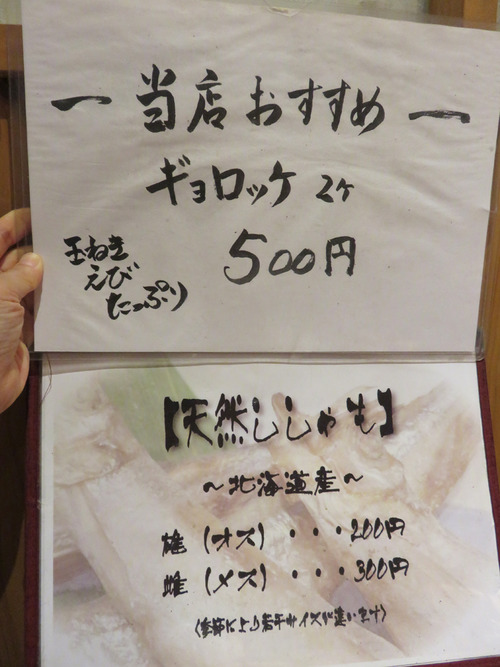 ー当店おすすめー
ギョロッケ 2ケ
500円
玉ねぎ
えび
たっぷり
【天然ししゃも】
～北海道産～
雄(オス)・・・200円
雌(メス)・・・300円
〈季節により若干サイズが違います〉